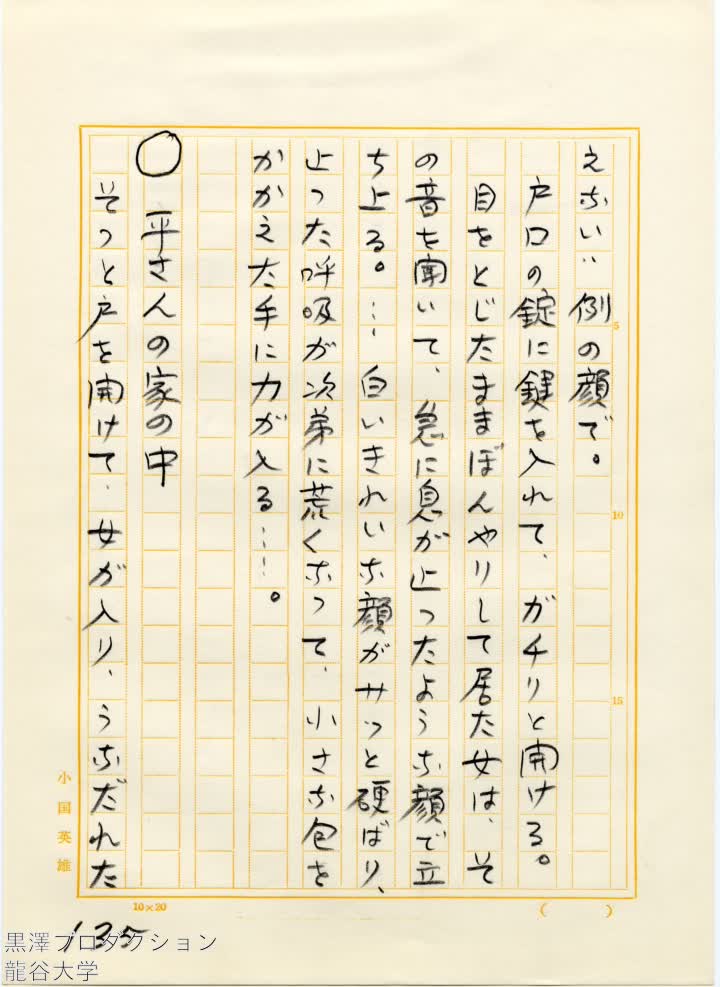 えない〟例の顔で。
戸口の錠に鍵を入れて、ガチリと開ける。
目をとじたままぼんやりして居た女は、そ
の音を聞いて、急に息が止つたような顔で立
ち上る。… 白いきれいな顔がサッと硬ばり、
止つた呼吸が次第に荒くなつて、小さな包を
かかえた手に力が入る……。
○ 平さんの家の中
そつと戸を開けて、女が入り、うなだれた
5
10
15
小国英雄
10×20
( )
135
黒澤プロダクション
龍谷大学